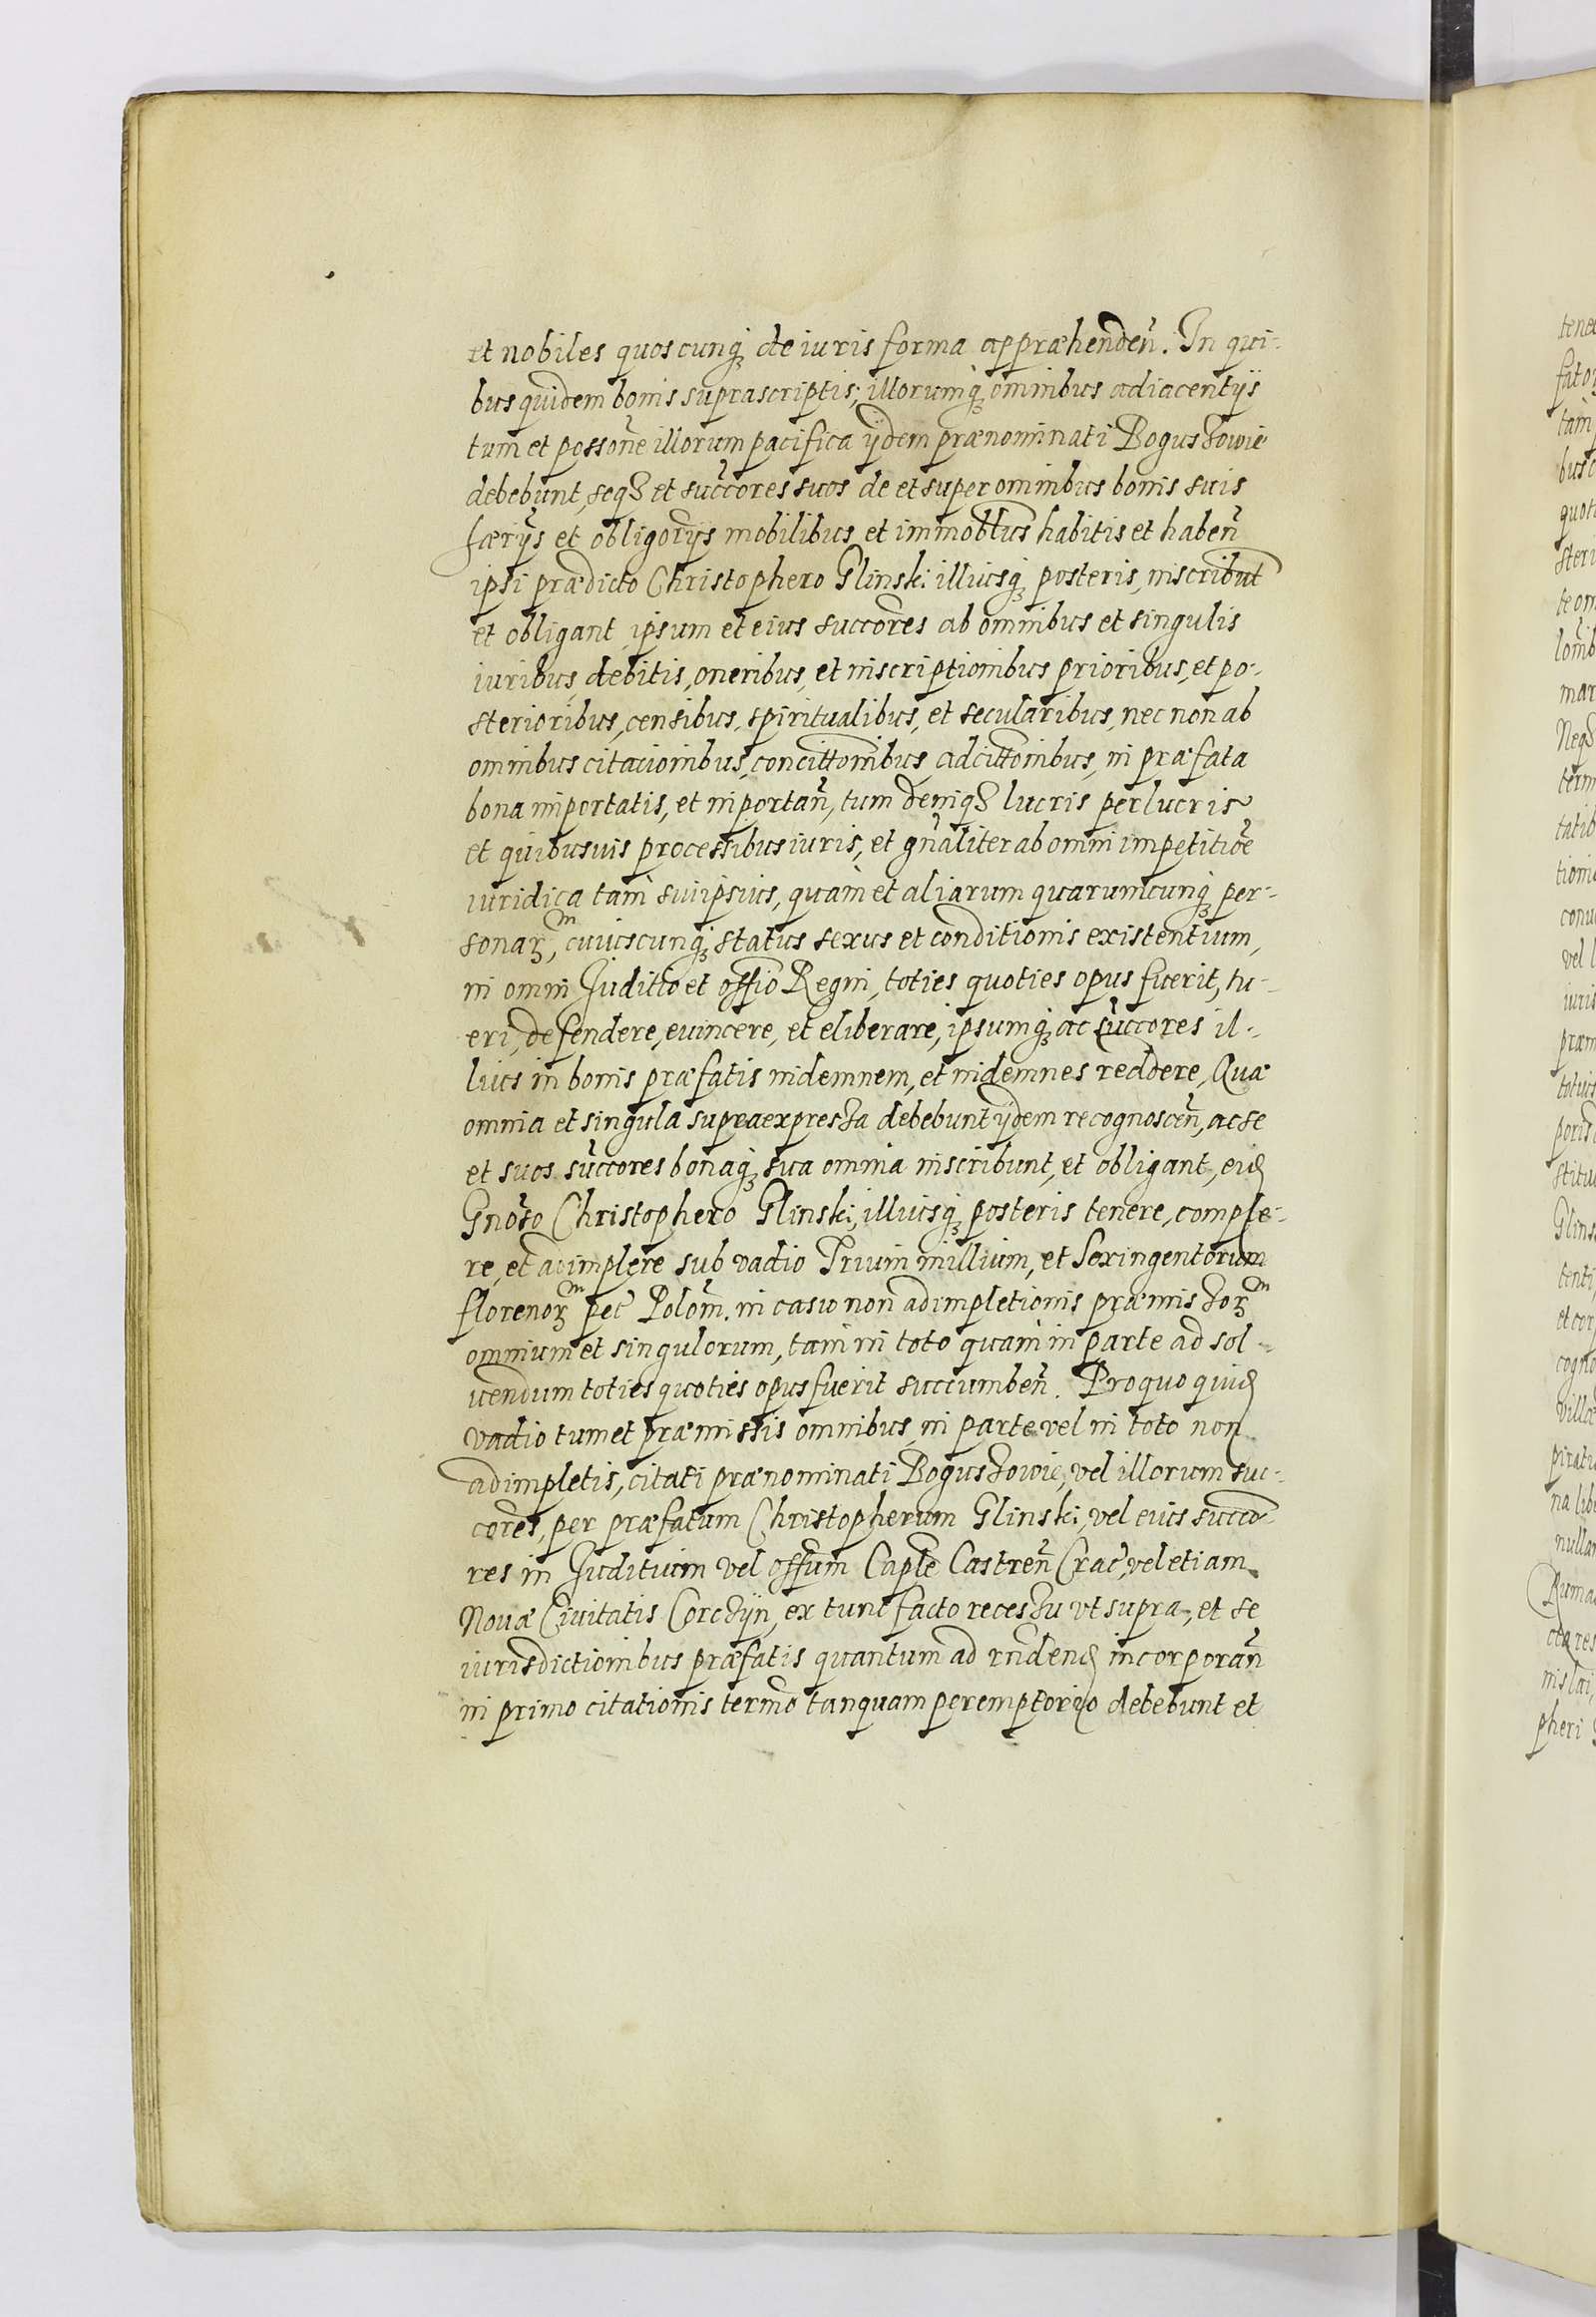 et nobiles quoscunq́ȝ de iuris forma appræhendeñ. In qui-
bus quidem bonis suprascriptis, illorumq́ȝ omnibus adiacentijs
tum et possoñe illorum pacifica ijdem prænominati Boguszowie
debebunt, seqȝ et succ̃ores suos de et super omnibus bonis suis
hærijs et obligorijs mobilibus et immobl̃bus habitis et habeñ
ipsi prædicto Christophero Glinski illiusq́ȝ posteris, inscribut̃
et obligant, ipsum et eius succor̃es ab omnibus et singulis
iuribus, debitis, oneribus, et inscriptionibus prioribus, et po-
sterioribus, censibus, spiritualibus, et secularibus, nec non ab
omnibus citacionibus, concittonibus, adcittonibus, in præfata
bona importatis, et inportañ, tum deniqȝ lucris perlucris
et quibusuis processibus iuris, et gñaliter ab omni impetitioẽ
iuridica tam suiipsius, quàm et aliarum quarumcunq́ȝ per-
sonaꝝm, cuiuscunq́ȝ status sexus et conditionis existentium,
in omni Juditio et offio Regni, toties quoties opus fuerit, tu-
eri, defendere, euincere, et eliberare, ipsumq́ȝ ac succ̃ores il-
lius in bonis præfatis indemnem, et indemnes reddere, Quæ
omnia et singula supraexpressa debebunt ijdem recognosceñ, ac se
et suos succ̃ores bonaq́ȝ sua omnia inscribunt, et obligant, eid
Gnõso Christophero Glinski, illiusq́ȝ posteris tenere, comple-
re, et adimplere sub vadio Trium millium, et Sexingentorum
florenoꝝm pec̃ Polom̃. in casu non adimpletionis præmissoꝝm
omnium et singulorum, tam in toto quàm in parte ad sol-
uendum toties quoties opus fuerit succumbeñ. Pro quo quid
vadio tum et præmissis omnibus, in parte vel in toto non
adimpletis, citati prænominati Boguszowie, vel illorum suc-
cor̃es, per præfatum Christopherum Glinski, vel eius succo-
res in Juditium vel offum̃ Capl̃e Castreñ Crac̃, vel etiam
Nouæ Ciuitatis Corczijn, ex tunc facto recessu vt supra, et se
iurisdictionibus præfatis quantum ad rñdend incorporañ
in primo citationis termõ tanquam peremptorio debebunt et